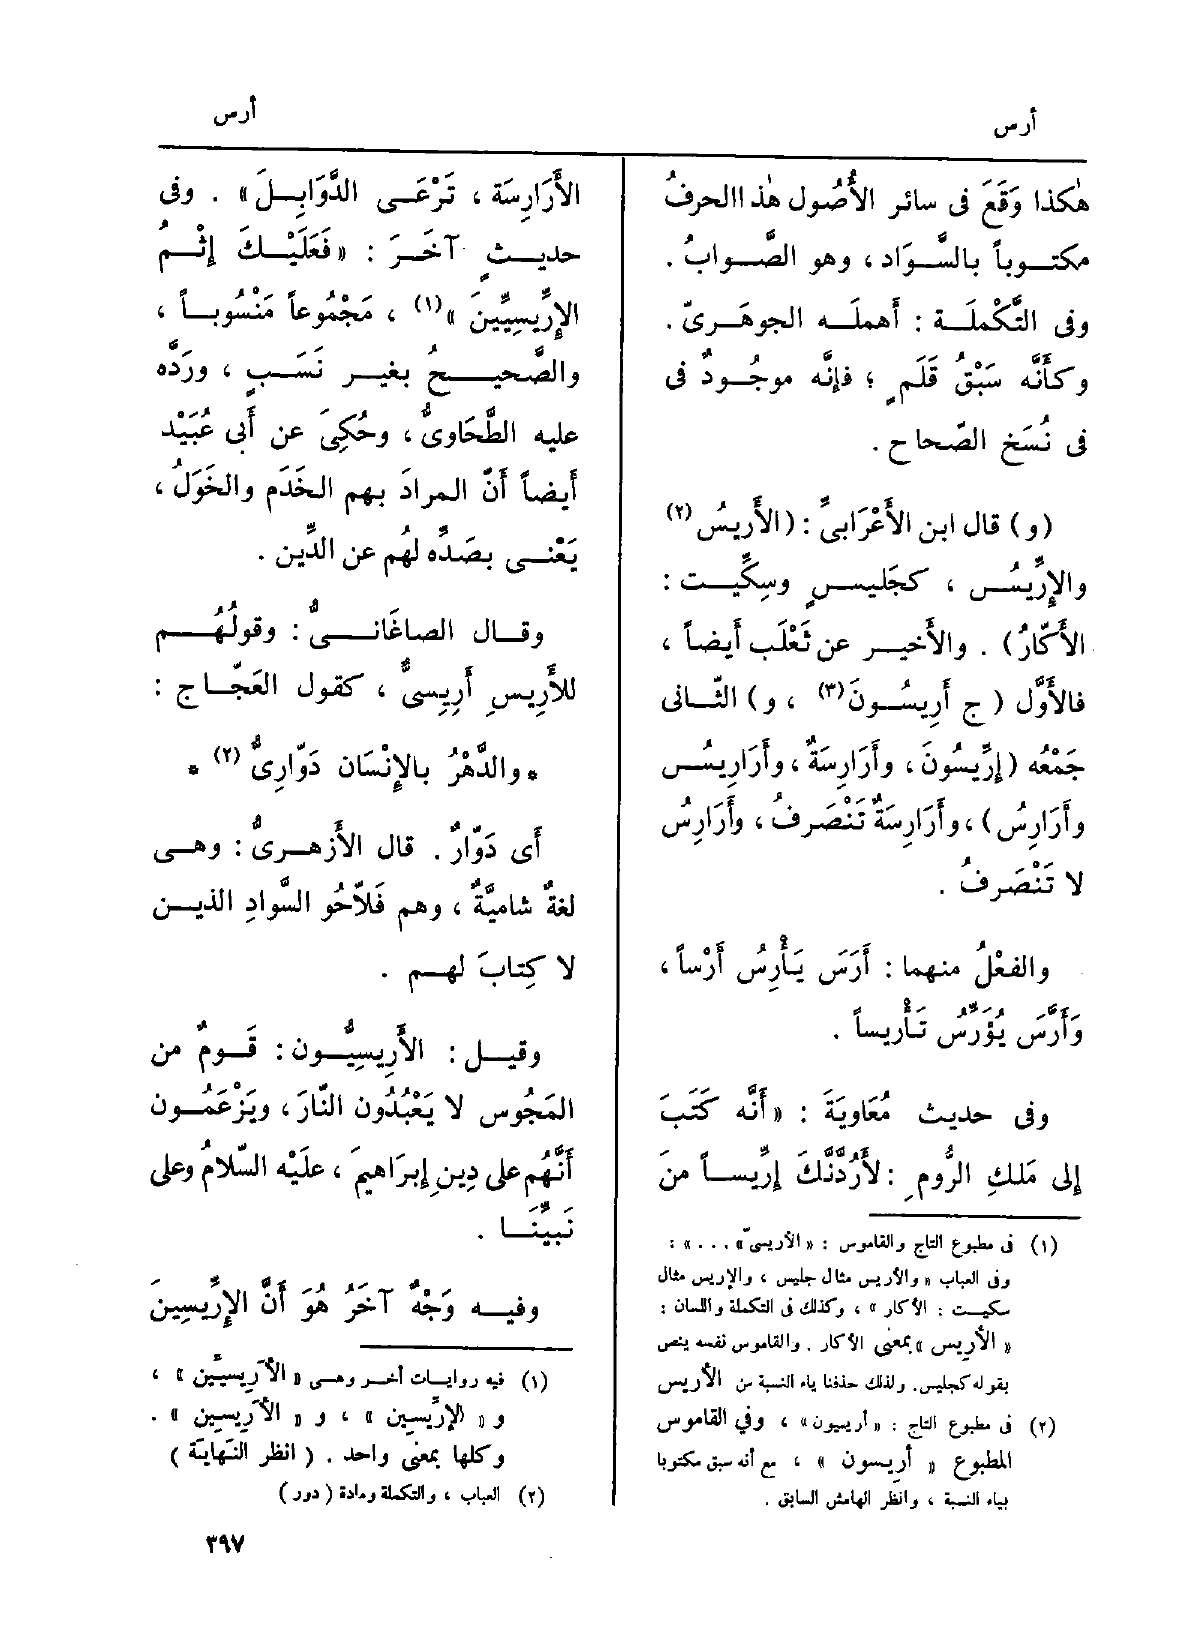 أرس
أرس
هٰكذا وَقَعَ فى سائر الأُصُول هٰذ االحرفُ
مكتــوباً بالسَّــوَاد ، وهو الصَّــوابُ .
وفى التَّكْملَــة : أهملَــه الجوهَــرىّ .
وكأَنَّه سَبْقُ قَلَــمٍ ؛ فإِنَّه موجُــودٌ فى
فى نُسَخ الصّحاح .
(و) قال ابن الأَعْرَابىِّ : (الأَرِيسُ (٢)
والإِرِّيسُــس ، كجَلِيــسٍ وسِكِّيــت :
الأَكّارُ) . والأَخيــر عن ثَعْلَب أَيضــاً ،
فالأَوَّل (ج أَرِيسُــونَ (٣) ، و) الثّــانى
جَمْعُه (إِرِّيسُونَ ، وأَرَارِسَةٌ ، وأَرَارِيسُــس
وأَرَارِسُ) ، وأَرَارِسَةٌ تَنْصَرفُ ، وأَرَارِسُ
لا تَنْصَرفُ .
والفعْلُ منهما : أَرَسَ يَـأْرِسُ أَرْساً ،
وَأَرَّسَ يُؤَرِّسُ تَـأْرِيساً .
وفى حديث مُعَاوِيَةَ : «أَنَّه كَتَبَ
إِلى مَلكِ الرُّومِ : لأَرُدَّنَّكَ إِرِّيســاً منَ
(١) فى مطبوع التاج والقاموس : « الأريسىّ» . . . » :
وفى العباب « والأريس مثال جليس ، والإريس مثال
سكيت : الأكار » ، وكذلك فى التكملة واللسان :
« الأريس » بمعنى الأكار . والقاموس نفسه ينص
بقوله كجليس. ولذلك حذفنا ياء النسبة من الأريس
(٢) فى مطبوع التاج : « أريسيون » ، وفي القاموس
المطبوع « أريسون » ، مع أنه سبق مكتوبا
بياء النسبة ، وانظر الهامش السابق .
الأَرَارِسَة ، تَرْعَــى الدَّوَابِــلَ» . وفى
حديــثٍ آخَــرَ : «فَعَلَيْــكَ إِثْــمُ
الإِرِّيسِيِّينَ » (١) ، مَجْمُوعاً مَنْسُوبــاً ،
والصَّحيــحُ بغير نَسَــبٍ ، ورَدَّه
عليه الطَّحَاوىُّ ، وحُكِىَ عن أَبى عُبَيْد
أَيضــاً أَنّ المرادَ بهم الخَدَم والخَوَلُ ،
يَعْنــى بصَدِّه لهُم عن الدِّين .
وقــال الصاغَانــىُّ : وقولُهُــم
للأَرِيسِ أَرِيسىٌّ ، كقول العَجّــاج :
* والدَّهْرُ بالإِنْسَان دَوّارِىٌّ (٢) *
أَى دَوّارٌ . قال الأَزهــرىُّ : وهــى
لغةٌ شاميَّةٌ ، وهم فَلاَّحُو السَّوادِ الذيــن
لا كِتابَ لهــم .
وقيــل : الأَرِيسِيُّــون : قَــومٌ من
المَجُوس لا يَعْبُدُون النّارَ ، ويَزْعَمُــون
أَنَّهُم على دِينِ إِبرَاهيمَ ، علَيْه السّلامُ وعلى
نَبيِّنَــا .
وفيــه وَجْهٌ آخَرُ هُوَ أَنَّ الإِرِّيسِينَ
(١) فيه روايــات أخــر وهــى « الأَرِيسيِّين » ،
و « الإرِّيسِين » ، و « الأَرِيسِين » .
وكلها بمعنى واحد . ( انظر النِّهايَة )
(٢) العباب ، والتكملة ومادة (دور)
٣٩٧